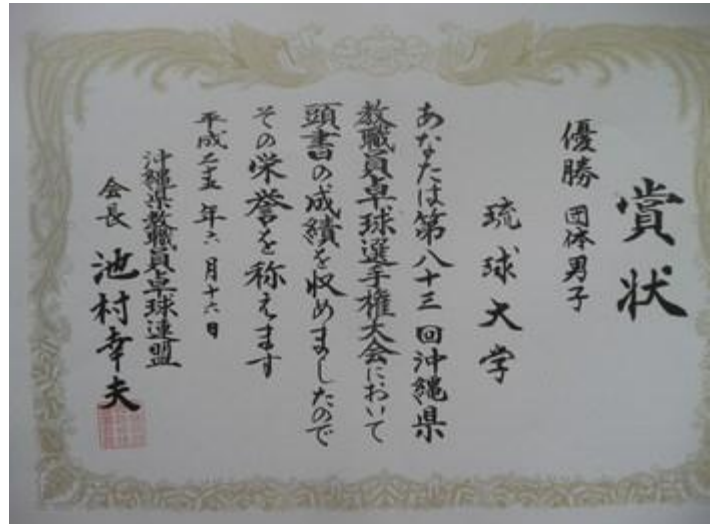 賞状
優勝 団体男子
琉球大学
あなたは第八十三回沖縄県
教職員卓球選手権大会において
頭書の成績を収めましたので
その栄誉を称えます
平成二五年六月十六日
沖縄県教職員卓球連盟
会長 池村幸夫